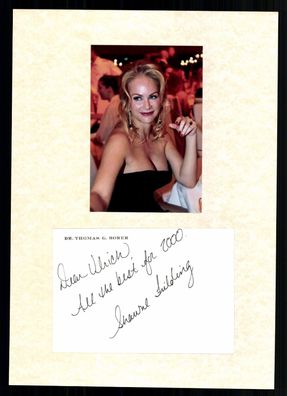 DR. THOMAS G. BORER
Dear Ulrich,
All the best for 2000.
Shawne Fielding